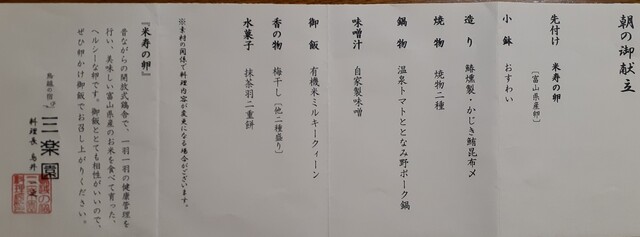 朝の御献立
先付け　米寿の卵
［富山県産卵］
小鉢　おすわい
造り　鰆燻製・かじき鮪昆布〆
焼物　焼物二種
鍋物　温泉トマトととなみ野ポーク鍋
味噌汁　自家製味噌
御飯　有機米ミルキークィーン
香の物　梅干し［他二種盛り］
水菓子　抹茶羽二重餅
※素材の関係で料理内容が変更になる場合がございます。
『米寿の卵』
昔ながらの開放式鶏舎で、一羽一羽の健康管理を
行い、美味しい富山県産のお米を食べて育った、
ヘルシーな卵です。御飯ととても相性がいいので、
ぜひ卵かけ御飯でお召し上がりください。
三楽園
料理長